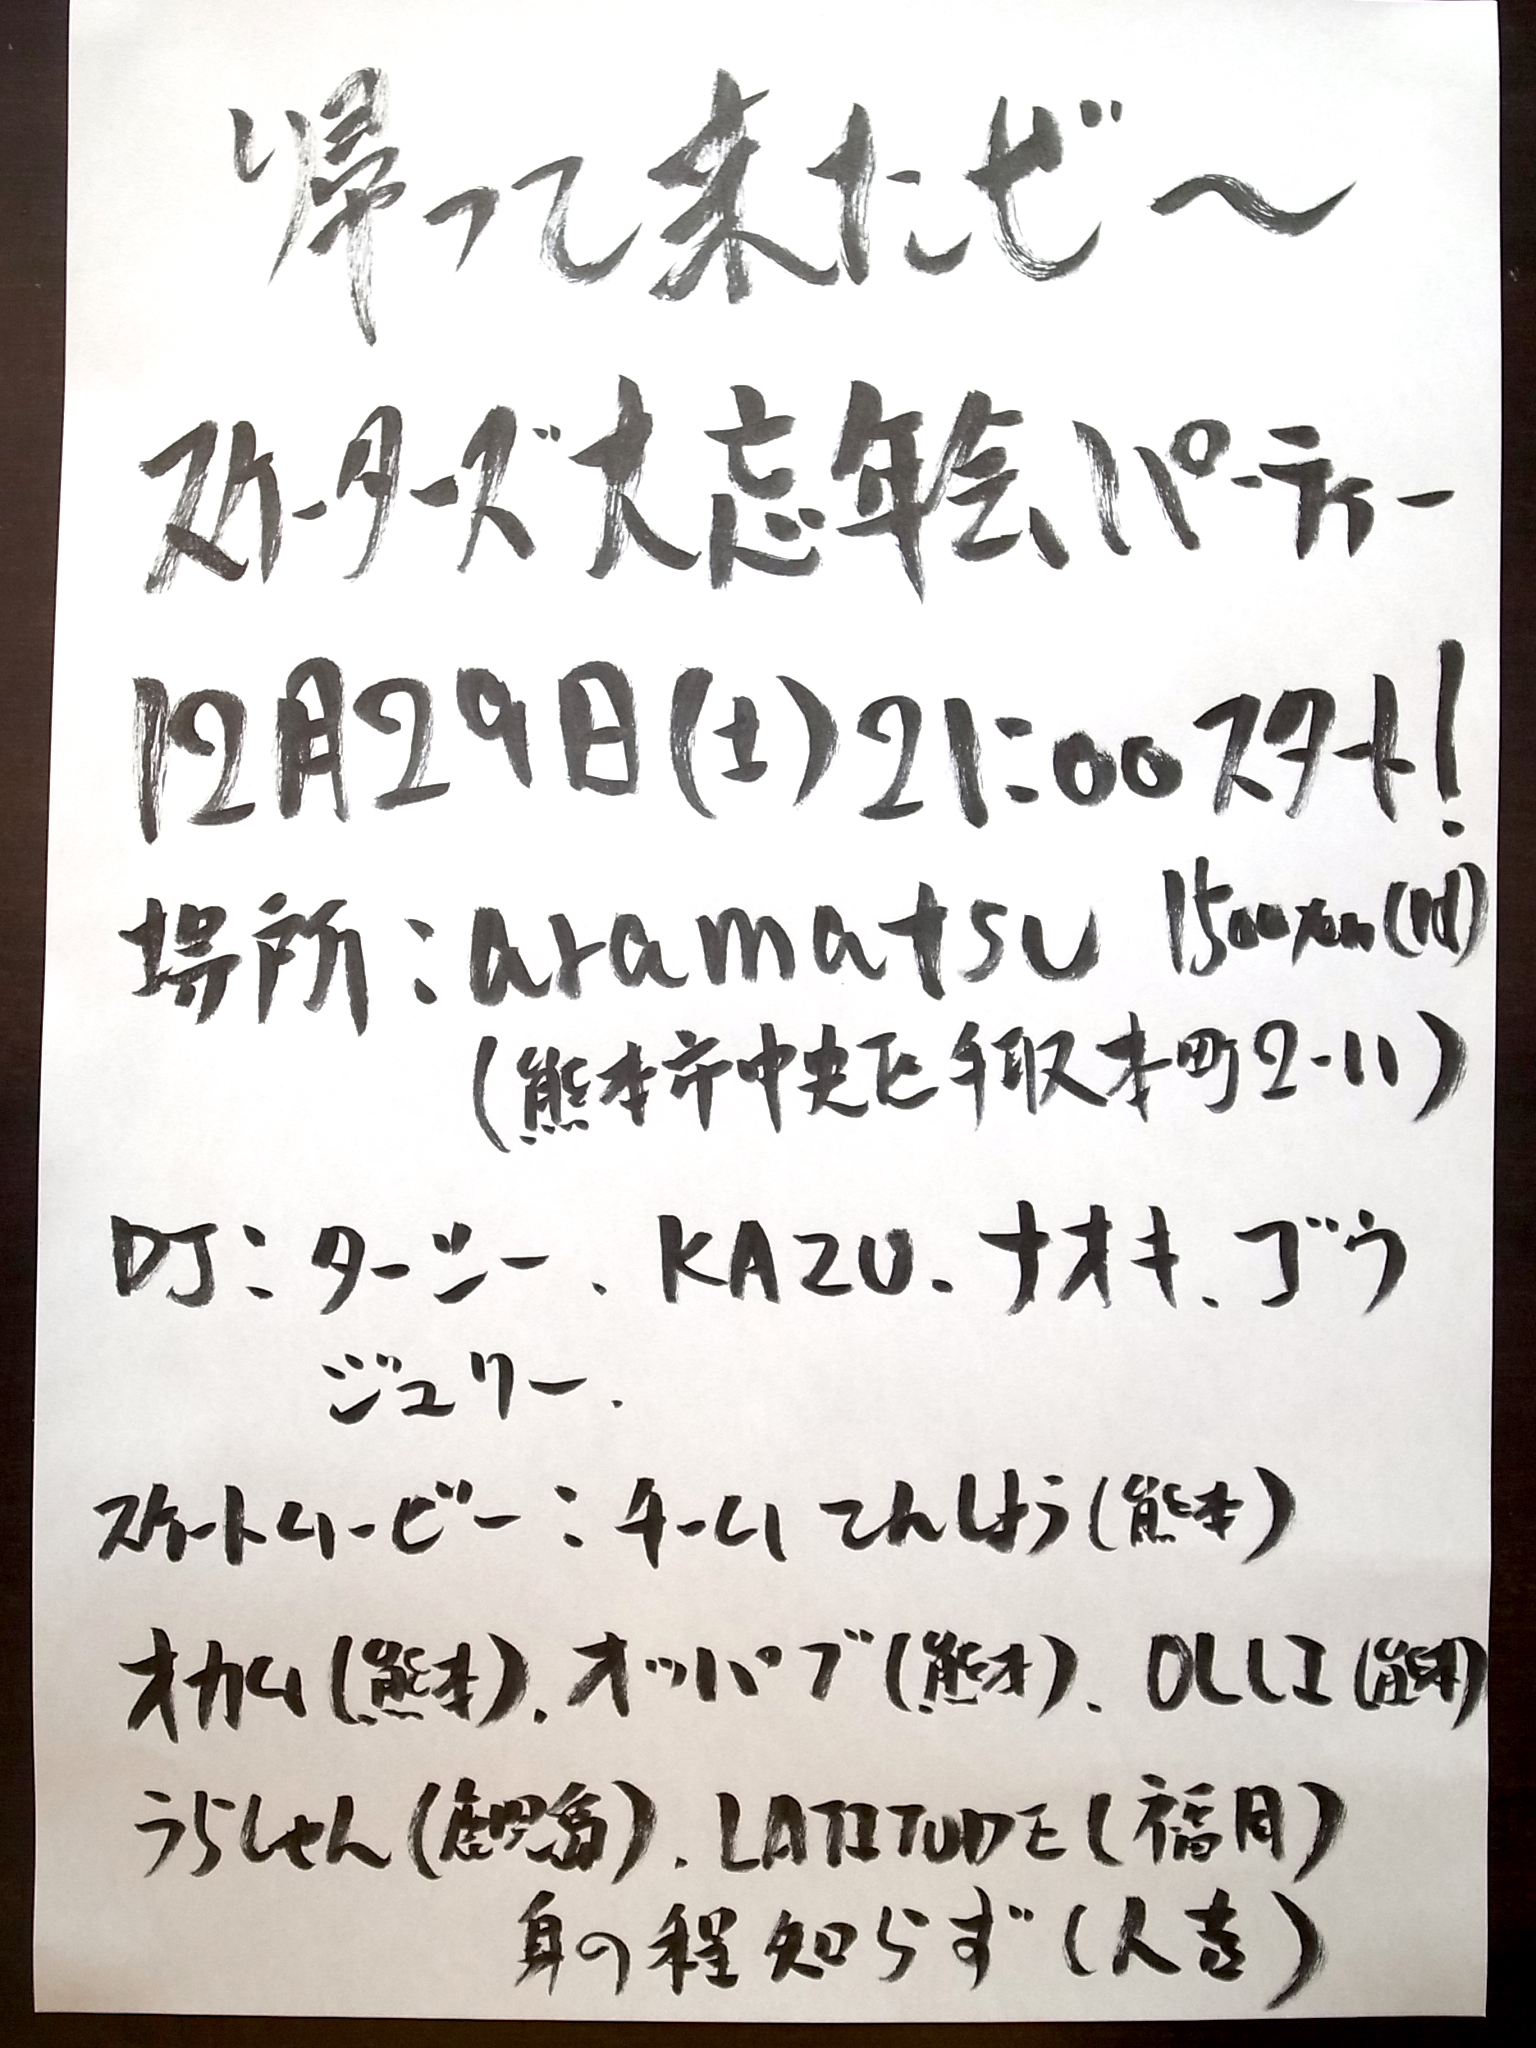 帰って来たぜ〜
スケーターズ大忘年会パーティー
12月29日(土)21:00スタート!
場所:aramatsu 1500yen(1d)
(熊本市中央区手取本町2-11)
DJ:ターシー、KAZU、ナオキ、ゴウ
ジュリー、
スケートムービー:チームてんしょう(熊本)
オカム(熊本)、オッパブ(熊本)、OLLI(熊本)
うらしゃん(鹿児島)、LATITUDE(福岡)
身の程知らず(人吉)